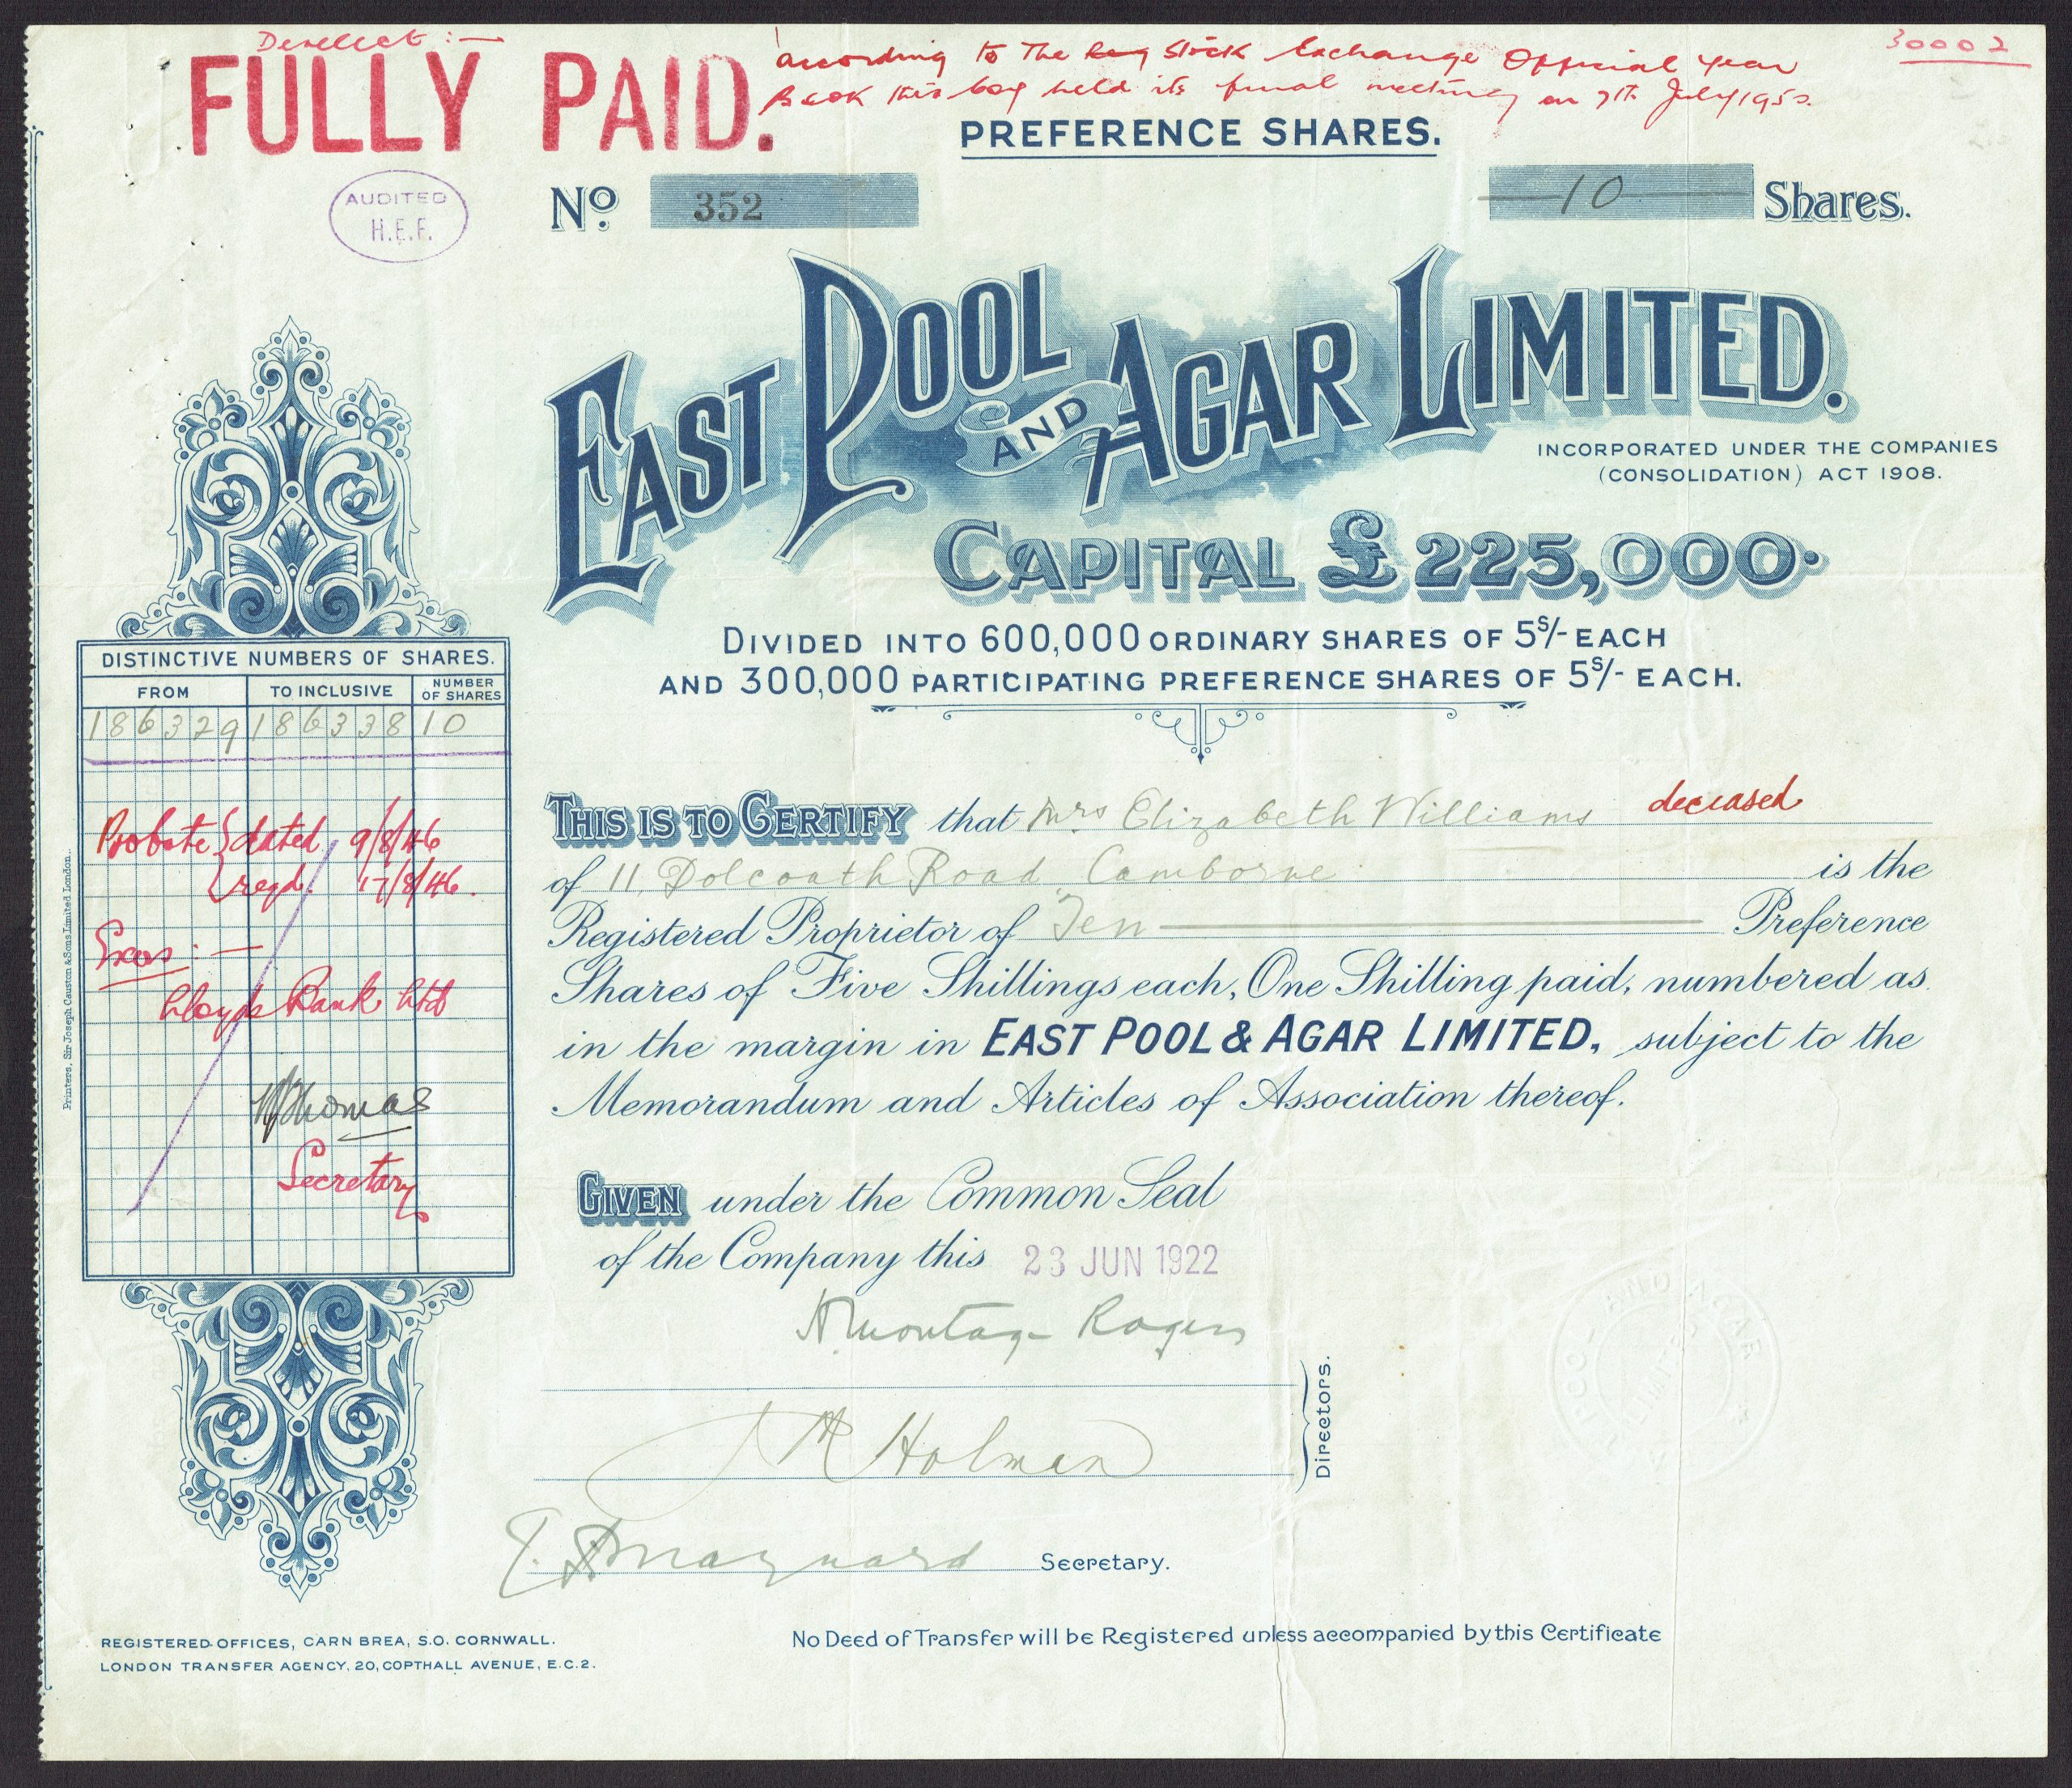 Derelict :—
FULLY PAID.
according to The Stock Exchange Official Year
Book this Coy held its final meeting on 7th July 195
30002
PREFERENCE SHARES.
AUDITED
H.E.F.
No. 352
10 Shares.
EAST POOL AND AGAR LIMITED.
INCORPORATED UNDER THE COMPANIES
(CONSOLIDATION) ACT 1908.
CAPITAL £225,000.
DIVIDED INTO 600,000 ORDINARY SHARES OF 5S/- EACH
AND 300,000 PARTICIPATING PREFERENCE SHARES OF 5S/- EACH.
DISTINCTIVE NUMBERS OF SHARES.
FROM TO INCLUSIVE NUMBER OF SHARES
186329 186338 10
Probate dated 9/8/46
regd. 17/8/46.
Exors :—
Lloyds Bank Ltd
Thomas
Secretary
Printers, Sir Joseph Causton & Sons Limited London.
THIS IS TO CERTIFY that Mrs Elizabeth Williams deceased
of 11, Dolcoath Road, Camborne is the
Registered Proprietor of Ten Preference
Shares of Five Shillings each, One Shilling paid, numbered as
in the margin in EAST POOL & AGAR LIMITED, subject to the
Memorandum and Articles of Association thereof.
GIVEN under the Common Seal
of the Company this 23 JUN 1922
Montague Rogers
Holman
Directors.
Maynard Secretary.
AND AGAR
LIMITED
REGISTERED OFFICES, CARN BREA, S.O. CORNWALL.
LONDON TRANSFER AGENCY, 20, COPTHALL AVENUE, E.C.2.
No Deed of Transfer will be Registered unless accompanied by this Certificate